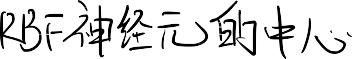 RBF神经元的中心